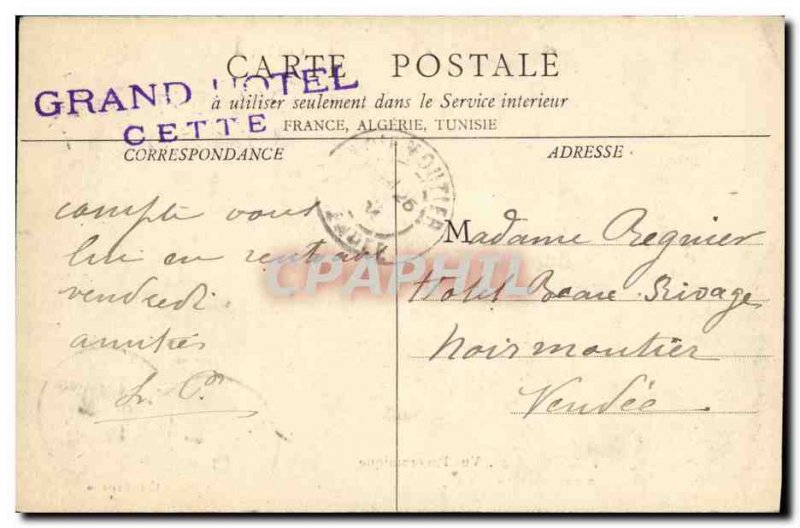 CARTE POSTALE
GRAND HOTEL
CETTE
à utiliser seulement dans le Service interieur
FRANCE, ALGÉRIE, TUNISIE
CORRESPONDANCE
ADRESSE
compte vous
lire en rentrant
vendredi.
amitiés
NOIRMOUTIER
26
CPAPHIL
Madame Regnier
Hotel Beau Rivage
Noirmoutier
Vendée